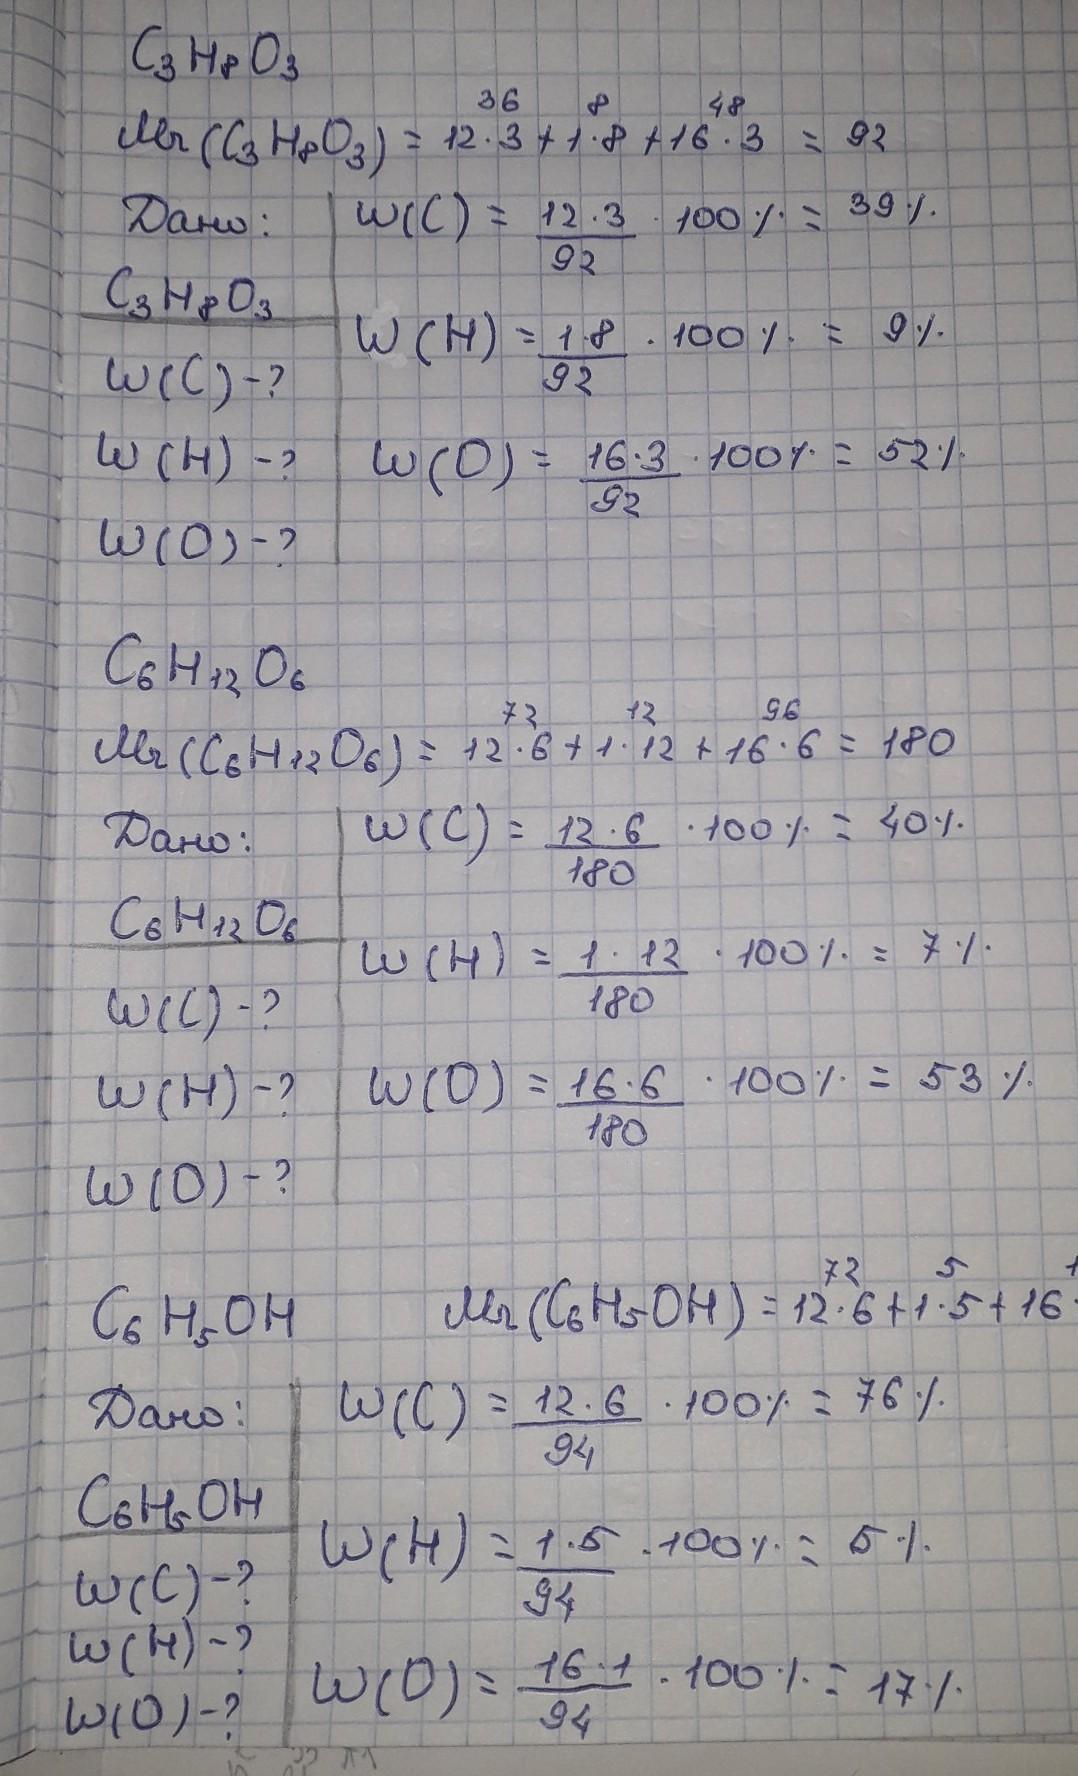 C₃H₈O₃
36 8 48
Mr(C₃H₈O₃) = 12·3+1·8+16·3 = 92
Дано:
C₃H₈O₃
W(C)-?
W(H)-?
W(O)-?
W(C) = 12·3/92 · 100% = 39%
W(H) = 1·8/92 · 100% = 9%
W(O) = 16·3/92 · 100% = 52%
C₆H₁₂O₆
72 12 96
Mr(C₆H₁₂O₆) = 12·6+1·12+16·6 = 180
Дано:
C₆H₁₂O₆
W(C)-?
W(H)-?
W(O)-?
W(C) = 12·6/180 · 100% = 40%
W(H) = 1·12/180 · 100% = 7%
W(O) = 16·6/180 · 100% = 53%
72 5 1
C₆H₅OH Mr(C₆H₅OH) = 12·6+1·5+16·
Дано:
C₆H₅OH
W(C)-?
W(H)-?
W(O)-?
W(C) = 12·6/94 · 100% = 76%
W(H) = 1·5/94 · 100% = 5%
W(O) = 16·1/94 · 100% = 17%